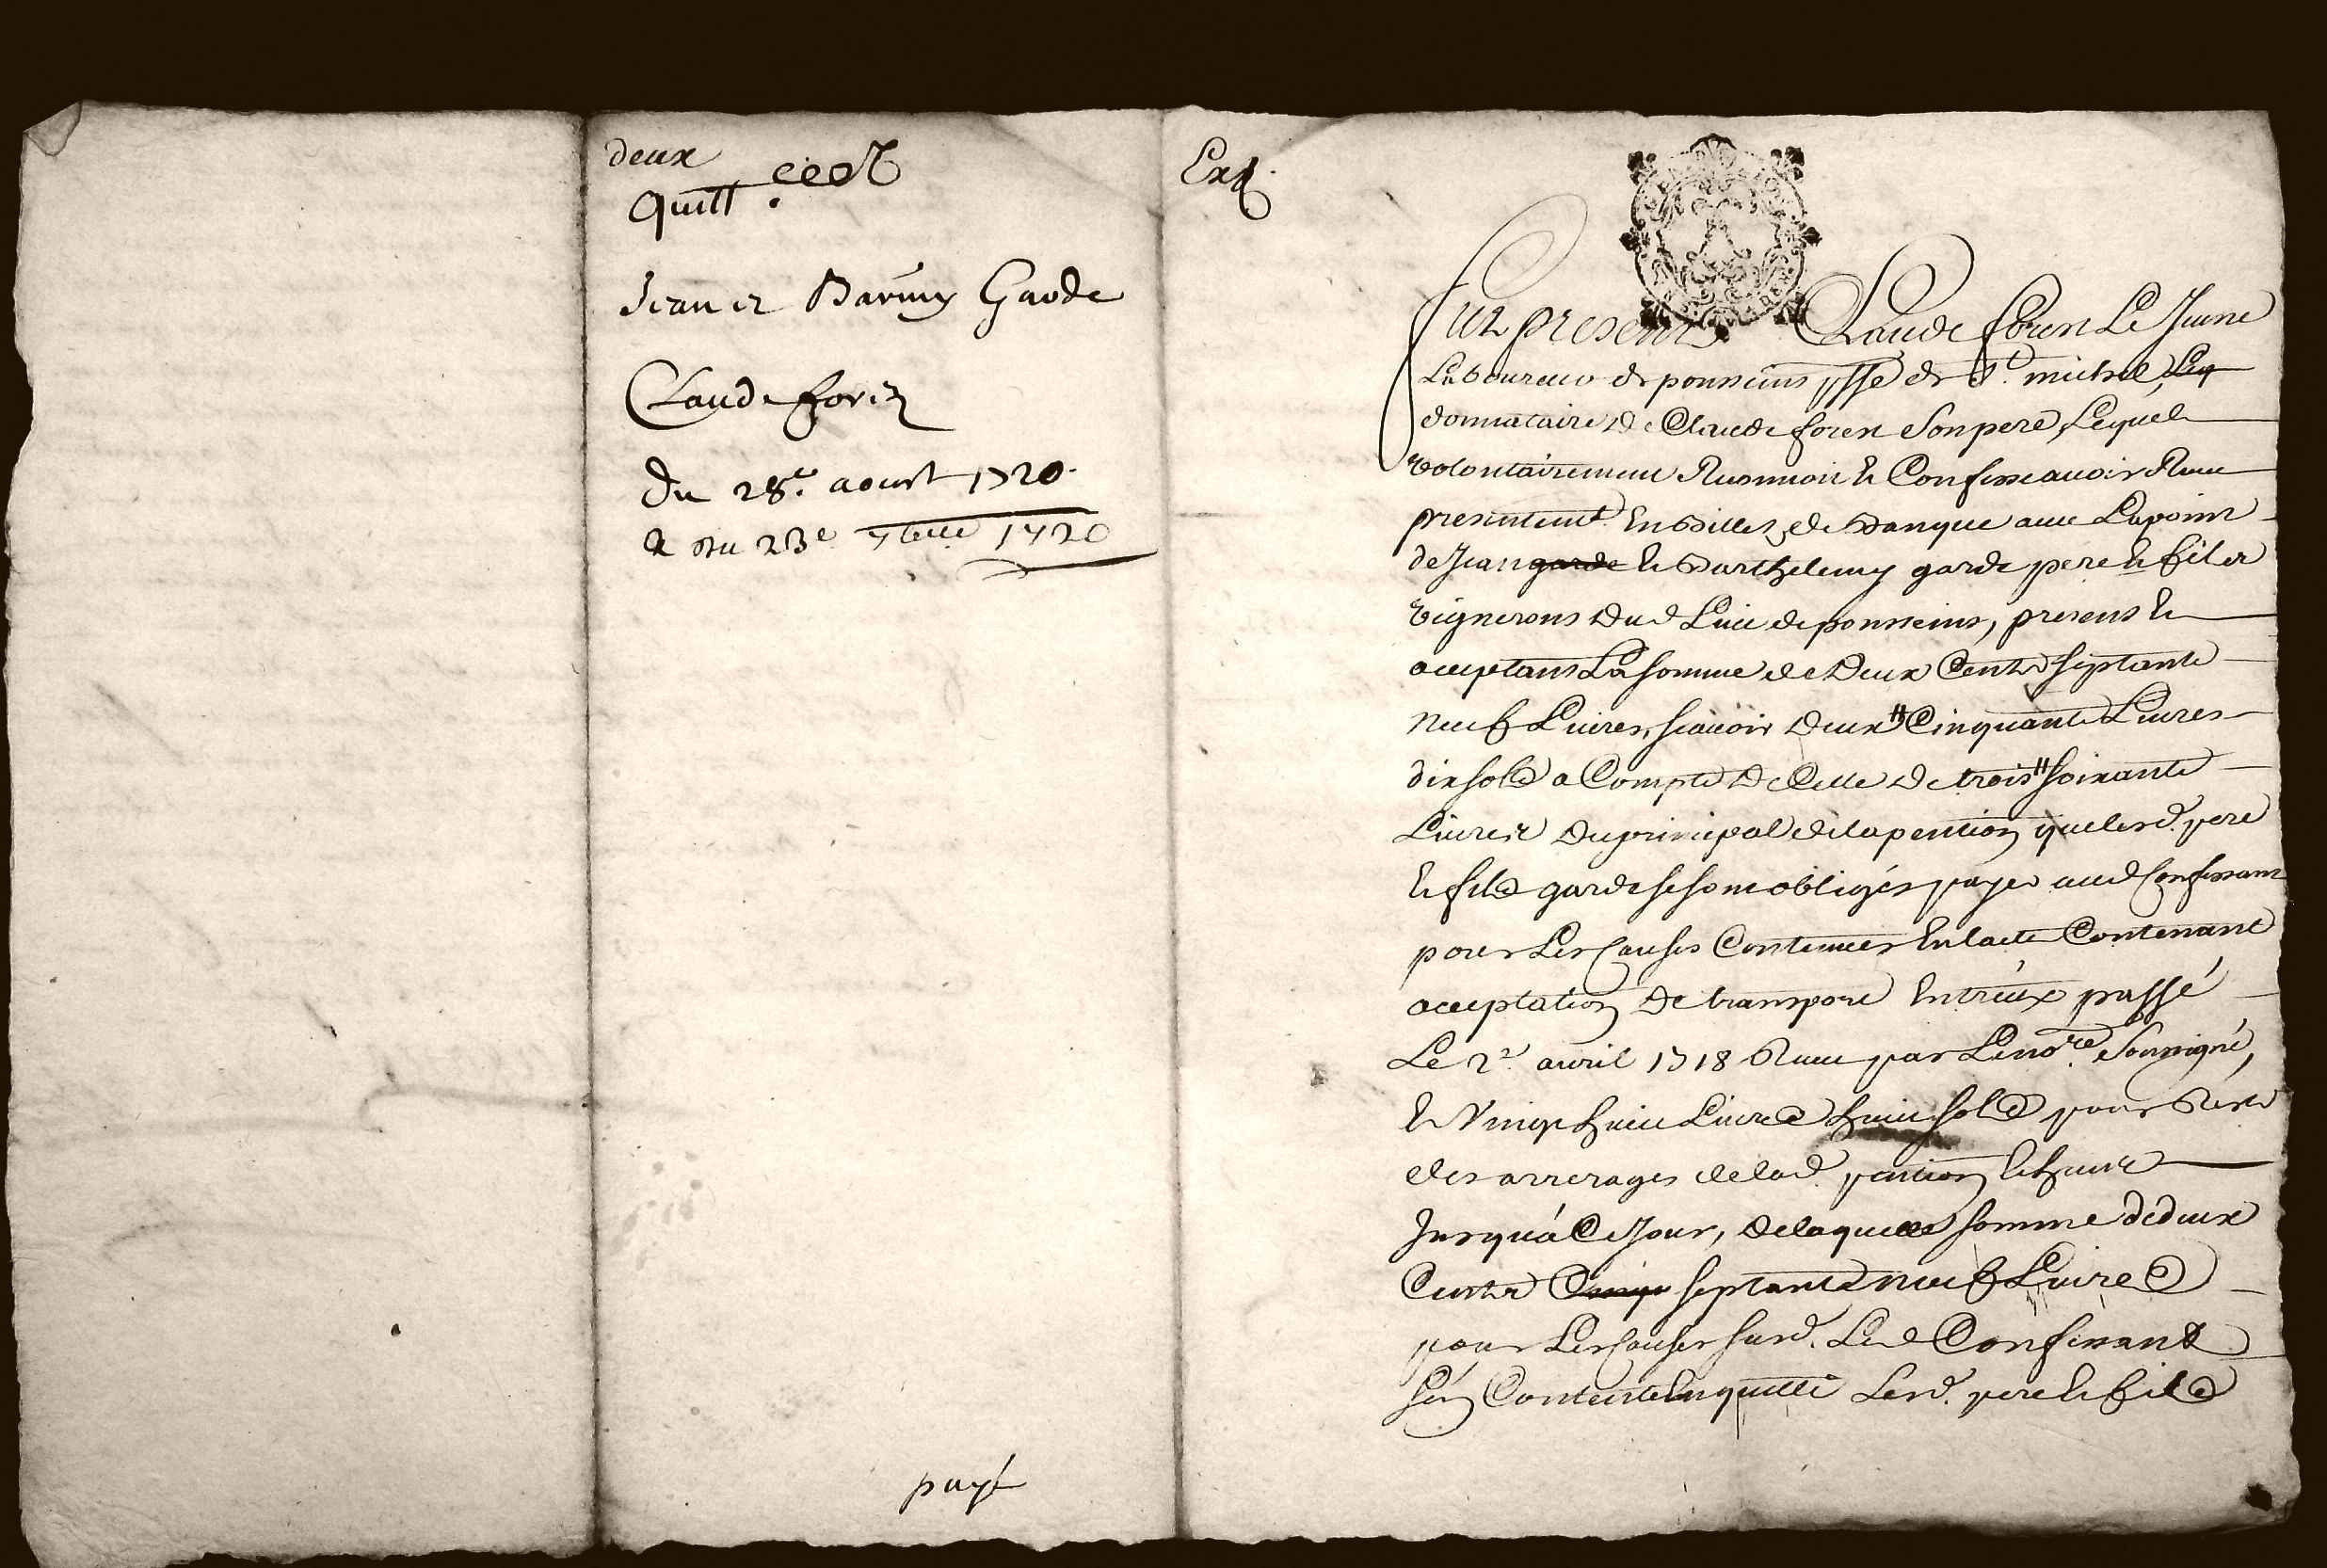 deux
quitt
Jean et Barmy Garde
Claude forez
Du 28.e aoust 1720
& du 23e 7bre 1720
payé
Ext
fut present Claude forest Le Jeune
Laboureur de ponsseins psse de St. michel, Leq
donnataire de Claude forest son pere, Lequel
volontairement Reconnoit et Confesse avoir Receu
presentemt. En billets de Banque avec Lapoint
de Jean garde et Barthelemy garde pere et fils
vignerons dud Lieu de ponsseins, presens et
acceptans La somme de Deux Cents septante
neuf Livres, scavoir deux Cinquante Livres
dix sols a Compte de Celle de trois soixante
Livres du principal de la pention que lesd. pere
et fils garde se sont obligés payer aud Confessant
pour Les Causes Contenues En lacte Contenant
acceptation de transport Entreux passé
Le 2e avril 1718 Receu par Le nore. soussigné,
et Vingt huit Livres huit sols pour Reste
des arrerages de lad. pention Echeute
Jusqu'a Ce Jour, de laquelle somme de deux
Cents Cinqu septante neuf Livres
pour Les Causes susd. Led Confessant
s'en Contente En quitte Lesd. pere et fils